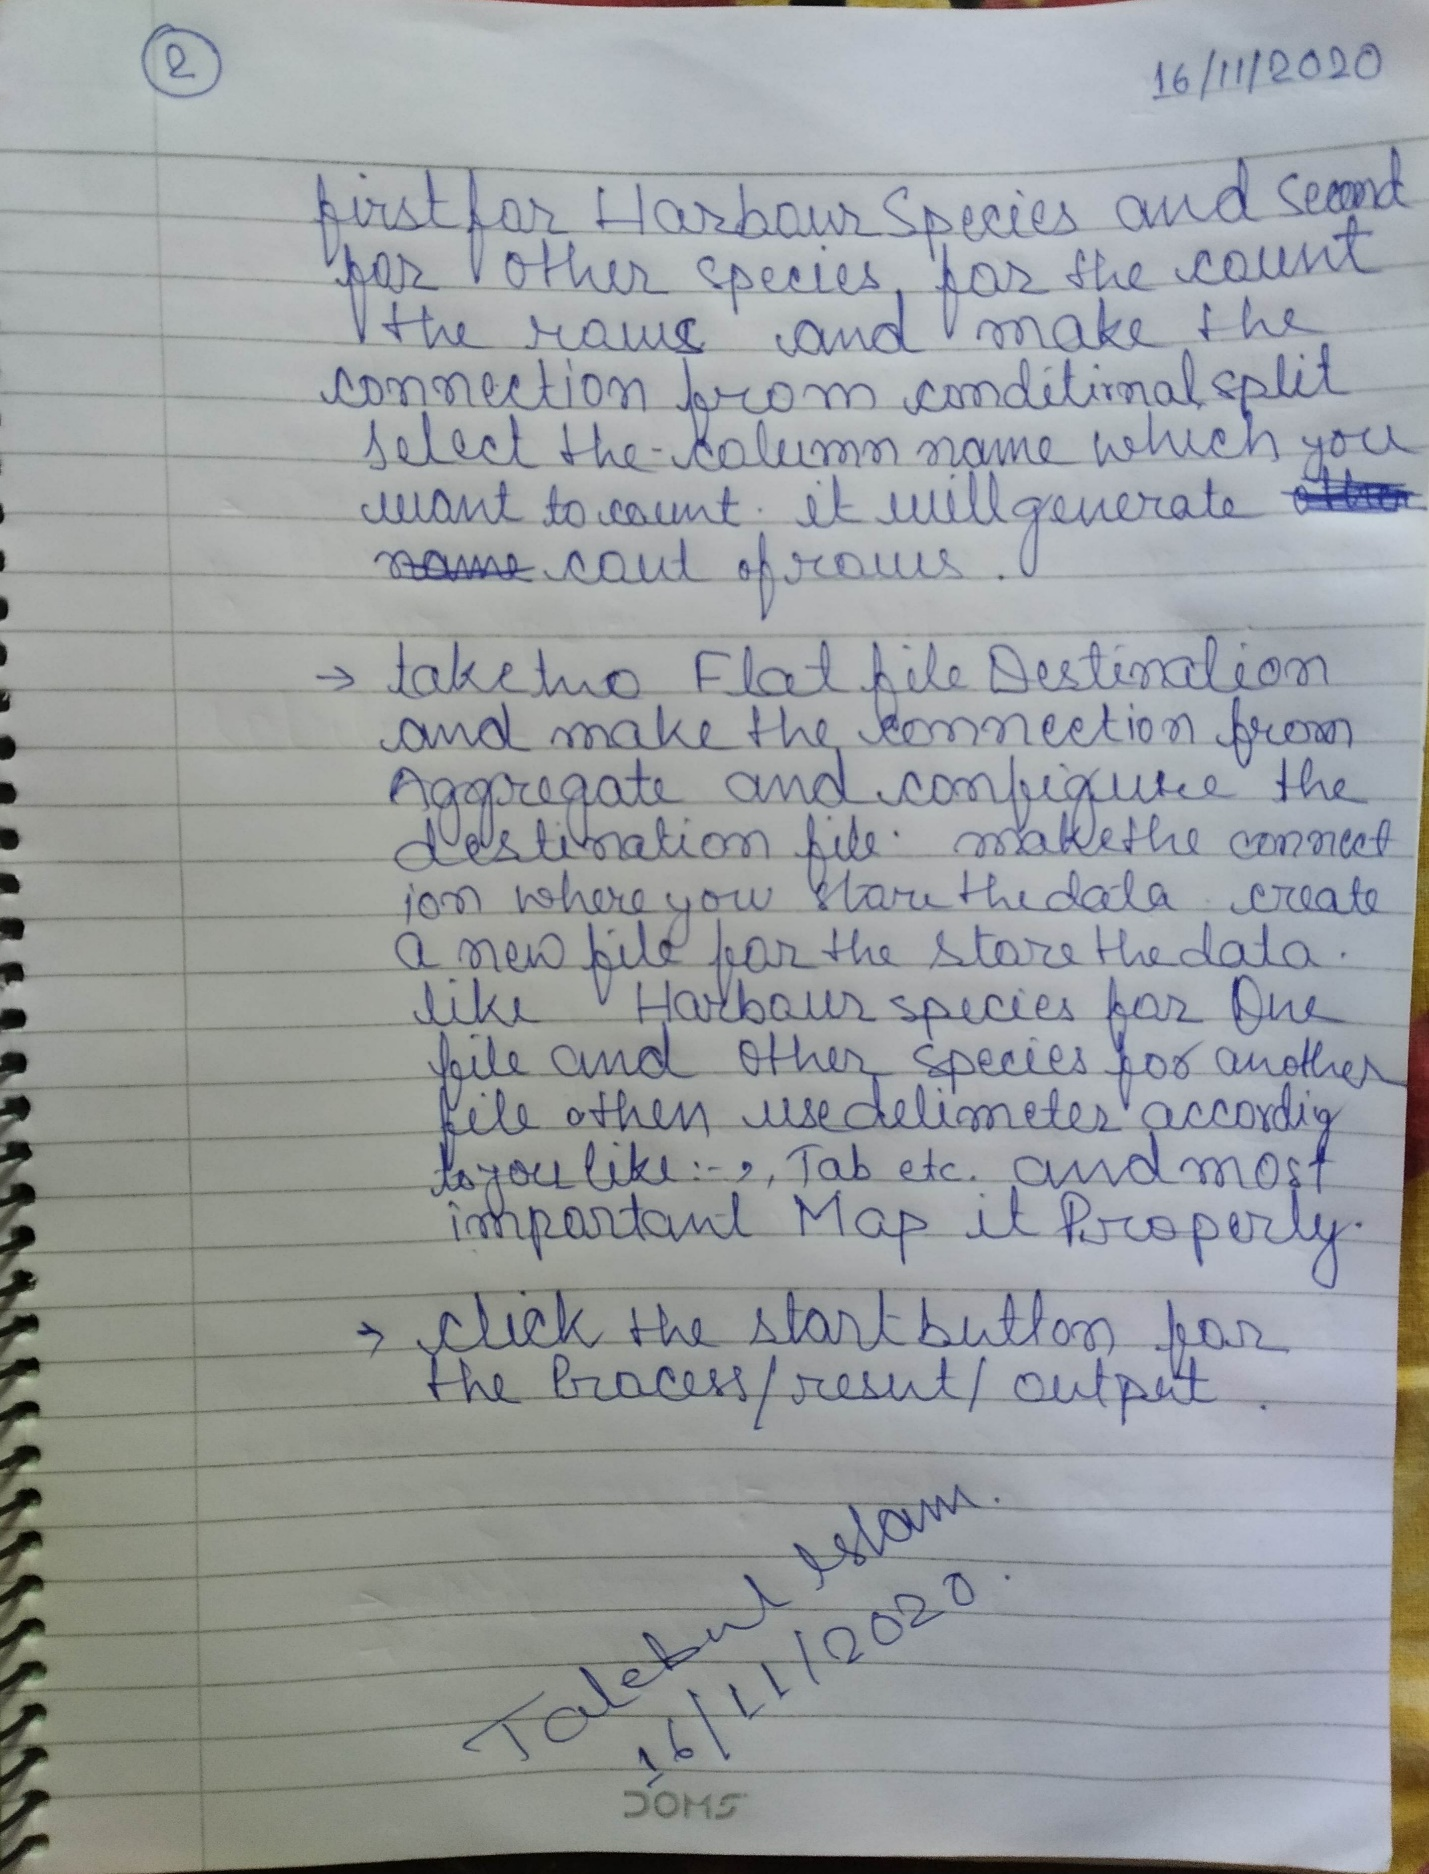 2
16/11/2020
first for Harbour Species and Second
for other species, for the count
the rows and make the
connection from conditional split
select the column name which you
want to count. it will generate other
name cout of rows.
→ take two Flat file Destination
and make the connection from
Aggregate and configure the
destination file. make the connect
ion where you store the data. create
a new file for the store the data.
like Harbour species for One
file and other species for another
file othen use delimeter accordig
to you like :- , Tab etc. and most
important Map it Properly.
→ click the start button for
the Process/resut/ output.
Talebul Islam.
16/11/2020.
DOMS